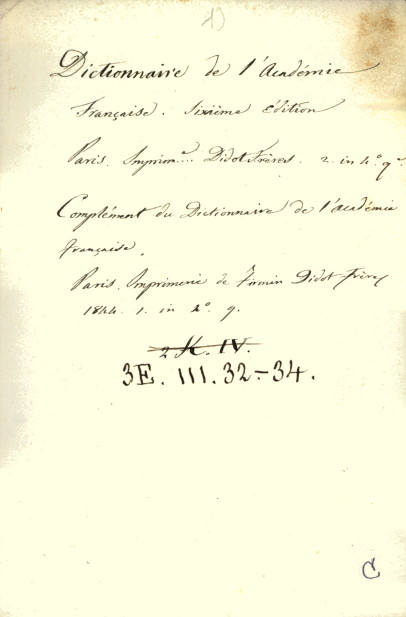 1)
Dictionnaire de l'Académie
Française. Sixième édition
Paris. Imprim... Didot Frères. 2. in 4° g.
Complément du Dictionnaire de l'académie
française.
Paris. Imprimerie de Firmin Didot Frères
1844. 1. in 4° g.
2 K. IV.
3E. III. 32-34.
C